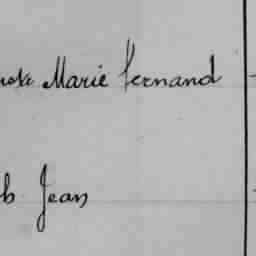 Marie Fernand
h Jean